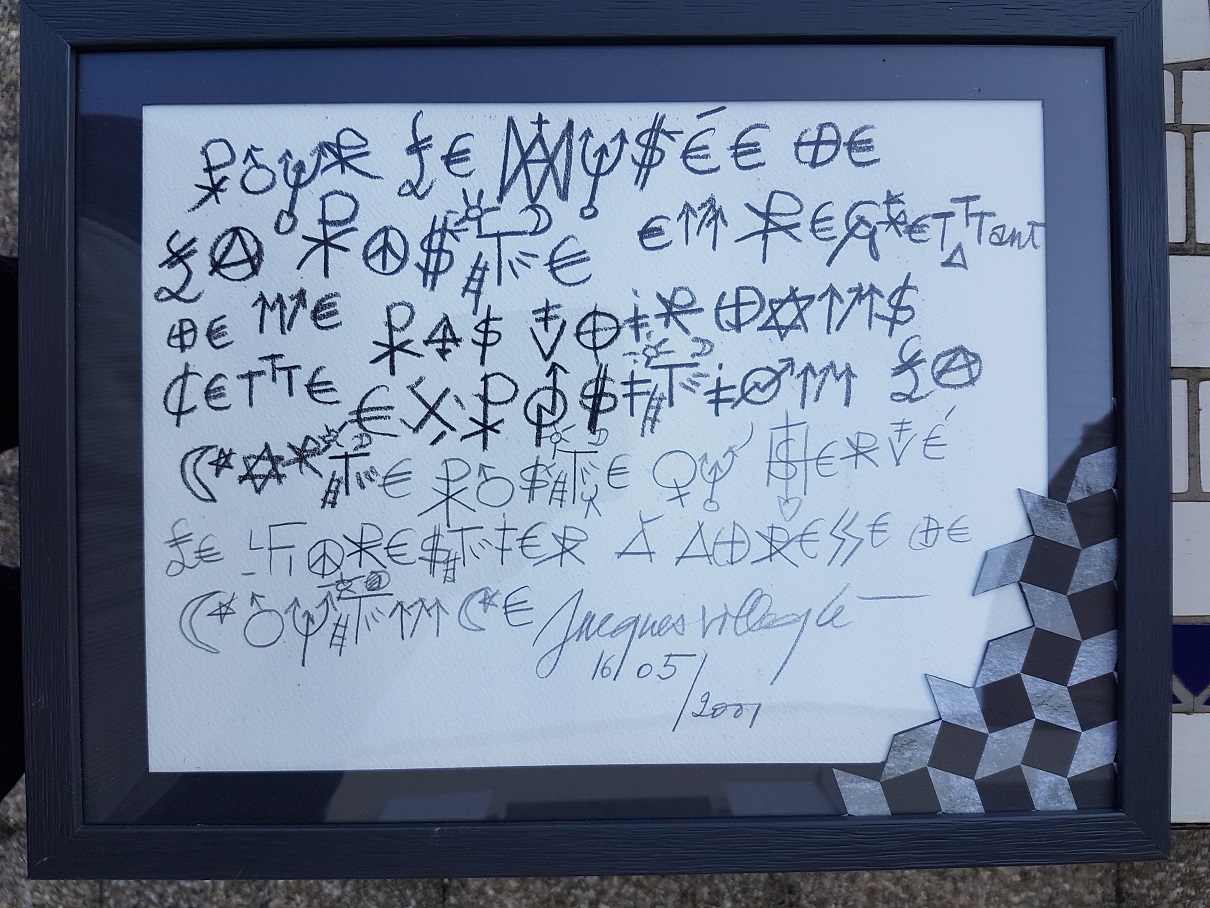 POUR LE MUSÉE DE
LA POSTE EN REGRETTant
DE NE PAS VOIR DANS
CETTE EXPOSITION LA
CARTE POSTE QU'HERVÉ
LE FORESTIER A ADRESSE DE
COUTANCE Jacques Villeglé
16/05/
2001